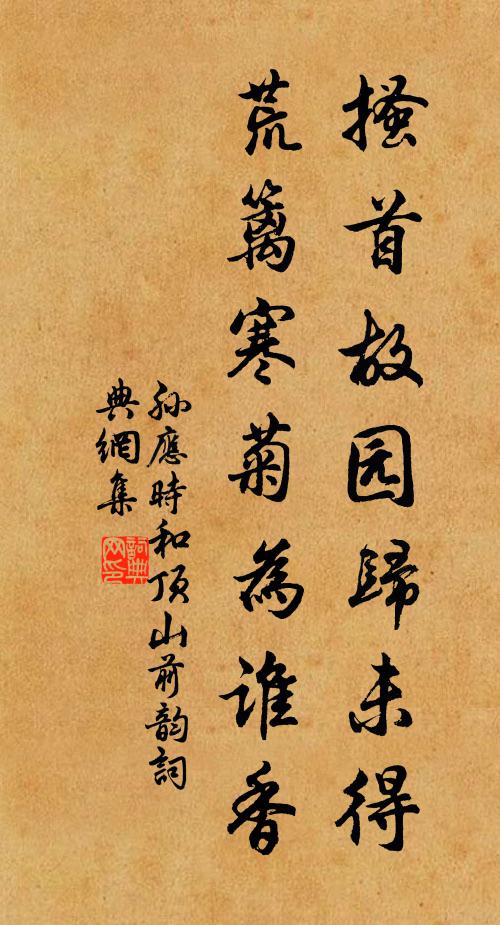 搔首故园歸未得
荒籬寒菊為誰香
孙應時和頂山前韵詞
典網集
詞典网印